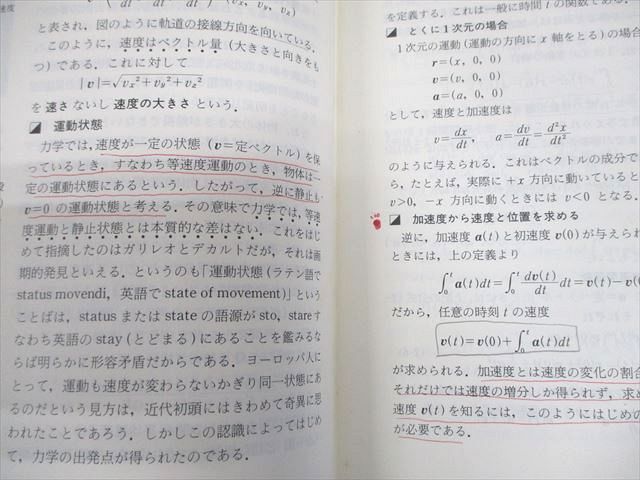 速度
dt dt dt
(vx, vy, vz)
と表され，図のように軌道の接線方向を向いている．
このように，速度はベクトル量（大きさと向きをも
つ）である．これに対して
|v|=√vx²+vy²+vz²
を速さないし速度の大きさという．
運動状態
力学では，速度が一定の状態（v=定ベクトル）を保
っているとき，すなわち等速度運動のとき，物体は一
定の運動状態にあるという．したがって，逆に静止も
v=0 の運動状態と考える．その意味で力学では，等速
度運動と静止状態とは本質的な差はない．これをはじ
めて指摘したのはガリレオとデカルトだが，それは画
期的発見といえる．というのも「運動状態（ラテン語で
status movendi，英語で state of movement）」という
ことばは，status または state の語源が sto, stare す
なわち英語の stay（とどまる）にあることを鑑みるな
らば明らかに形容矛盾だからである．ヨーロッパ人に
とって，運動も速度が変わらないかぎり同一状態にあ
るのだという見方は，近代初頭にはきわめて奇異に思
われたことであろう．しかしこの認識によってはじめ
て，力学の出発点が得られたのである．
を定義する．これは一般に時間 t の関数である．
とくに1次元の場合
1次元の運動（運動の方向に x 軸をとる）の場合
r=(x, 0, 0)
v=(v, 0, 0)
a=(a, 0, 0)
として，速度と加速度は
v=dx/dt, a=dv/dt=d²x/dt²
のように与えられる．これはベクトルの成分で
ら，たとえば，実際に +x 方向に動いていると
v>0，−x 方向に動くときには v<0 となる．
加速度から速度と位置を求める
逆に，加速度 a(t) と初速度 v(0) が与えられ
ときには，上の定義より
∫₀ᵗ a(t)dt=∫₀ᵗ dv(t)/dt dt=v(t)−v(
だから，任意の時刻 t の速度
v(t)=v(0)+∫₀ᵗ a(t)dt
が求められる．加速度とは速度の変化の割合
それだけでは速度の増分しか得られず，求め
速度 v(t) を知るには，このようにはじめの
が必要である．